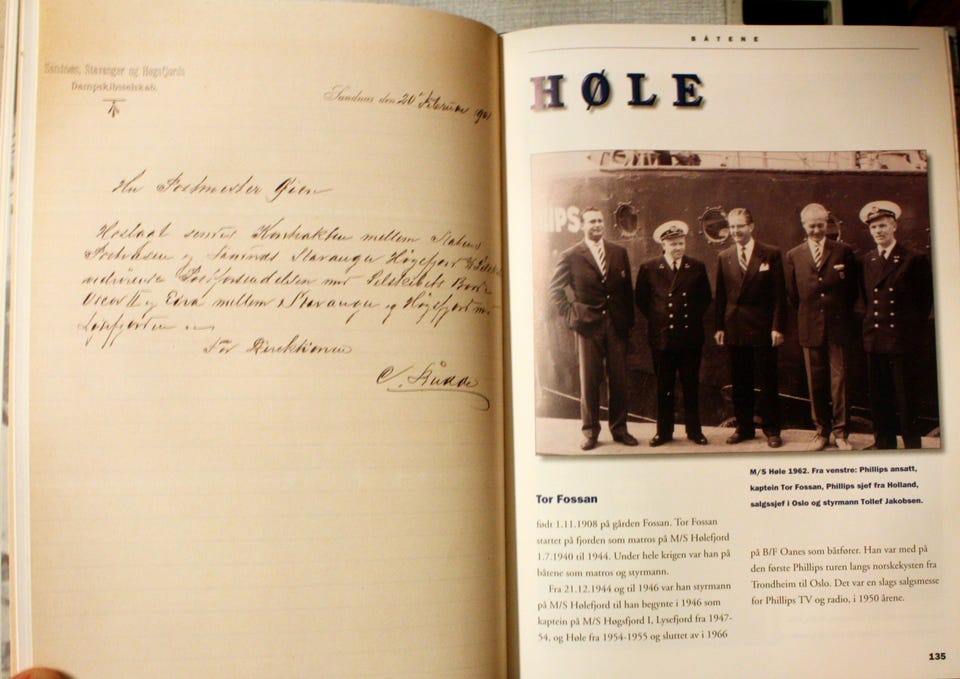 Sandnes, Stavanger og Høgsfjords
Dampskibsselskab.
Sandnes den 20 Februar 1901
Hr Postmester Gjøen
Hoslagt sendes Kontrakten mellem Statens
Postvæsen og Sandnæs Stavanger Høgsfjord D/S Selskab
vedrörende Postforsendelsen med Selskabets Baade
Oscar II og Edva mellem Stavanger og Høgsfjord med
Lysefjorden
For Direktionen
BÅTENE
HØLE
IPS
M/S Høle 1962. Fra venstre: Phillips ansatt,
kaptein Tor Fossan, Phillips sjef fra Holland,
salgssjef i Oslo og styrmann Tollef Jakobsen.
Tor Fossan
født 1.11.1908 på gården Fossan. Tor Fossan
startet på fjorden som matros på M/S Hølefjord
1.7.1940 til 1944. Under hele krigen var han på
båtene som matros og styrmann.
Fra 21.12.1944 og til 1946 var han styrmann
på M/S Hølefjord til han begynte i 1946 som
kaptein på M/S Høgsfjord I, Lysefjord fra 1947-
54, og Høle fra 1954-1955 og sluttet av i 1966
på B/F Oanes som båtfører. Han var med på
den første Phillips turen langs norskekysten fra
Trondheim til Oslo. Det var en slags salgsmesse
for Phillips TV og radio, i 1950 årene.
135